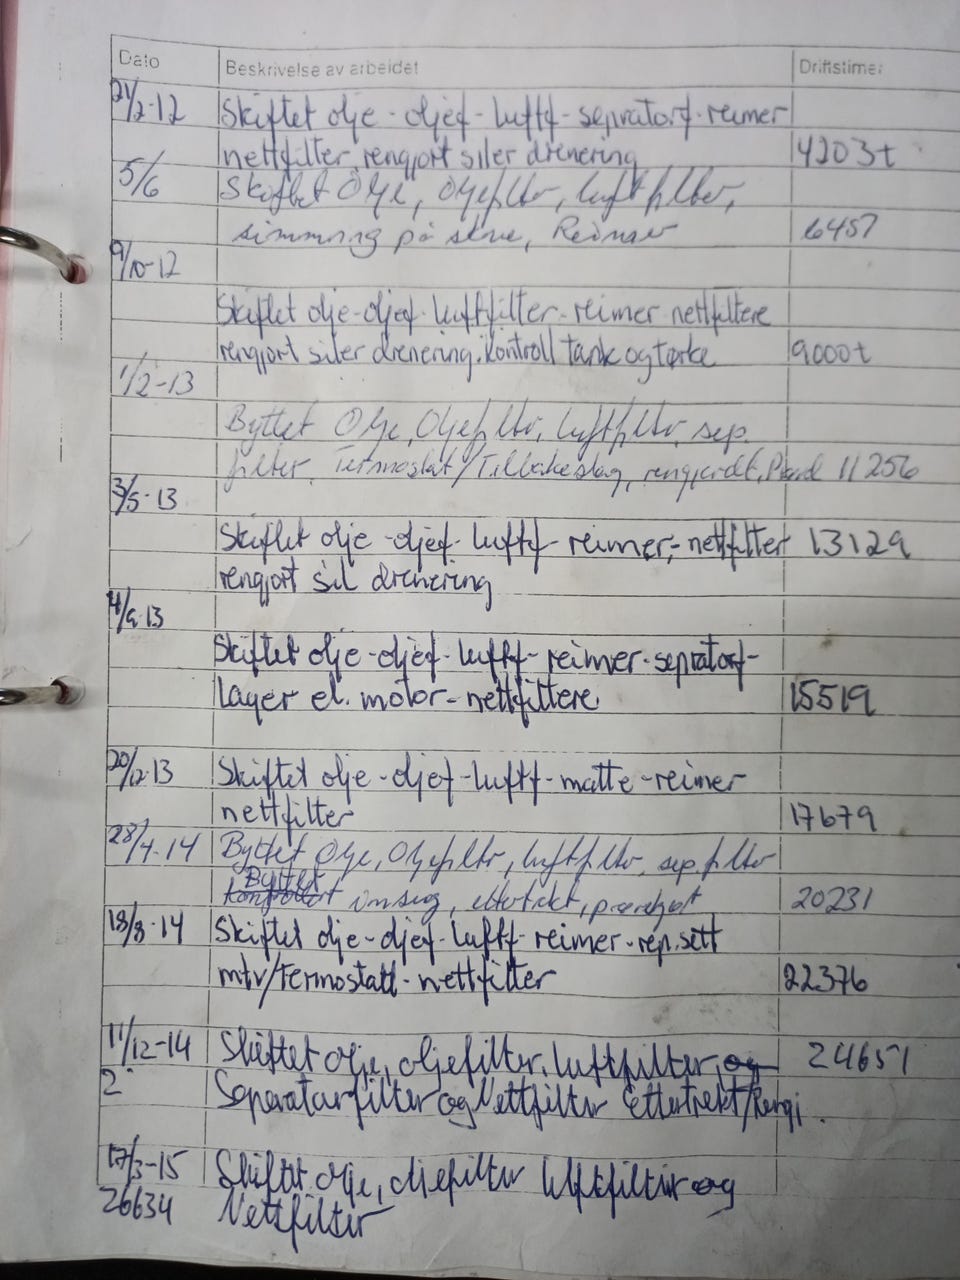 Dato Beskrivelse av arbeidet Driftstimer
21/2-12 Skiftet olje-oljef-luftf-sepratorf-reimer
nettfilter, rengjort siler drenering 4203t
5/6 Skiftet Olje, Oljefilter, luftfilter,
på Reimer 6457
9/10-12
Skiftet olje-oljef-luftfilter-reimer-nettfiltere
rengjort siler drenering. Kontroll tank og tørke 9000t
1/2-13
Byttet Olje, Oljefilter, luftfilter, sep.
filter, Termostat/Tilbakeslag, 11256
3/5-13
Skiftet olje-oljef-luftf-reimer,-nettfilter 13129
rengjort sil drenering
4/9-13
Skiftet olje-oljef-luftf-reimer-sepratorf-
Lager el. motor-nettfiltere 15519
20/12-13 Skiftet olje-oljef-luftf-matte-reimer
nettfilter 17679
28/4-14 Byttet Olje, Oljefilter, luftfilter, sep. filter
Byttet innsug, ettertrekt, 20231
18/8-14 Skiftet olje-oljef-luftf-reimer-rep.sett
mtv/termostatt-nettfilter 22376
11/12-14 Skiftet olje, oljefilter, luftfilter, og 24651
2 Separatorfilter og Nettfilter Ettertrekt/Rengj.
17/3-15 Skiftet olje, oljefilter luftfilter og
26634 Nettfilter